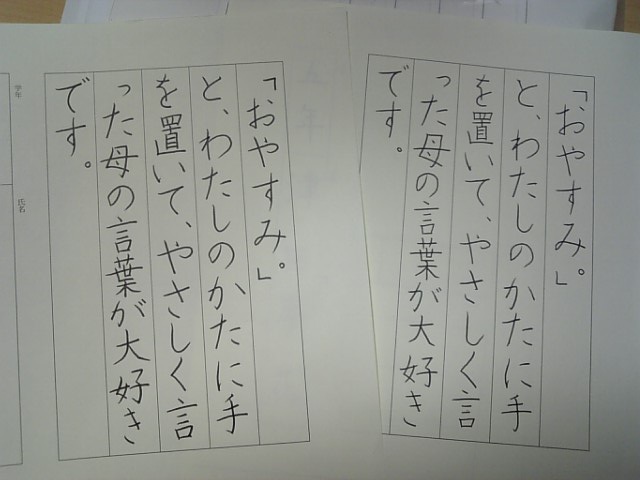 「おやすみ。」
と、わたしのかたに手
を置いて、やさしく言
った母の言葉が大好き
です。
「おやすみ。」
と、わたしのかたに手
を置いて、やさしく言
った母の言葉が大好き
です。
学年
氏名